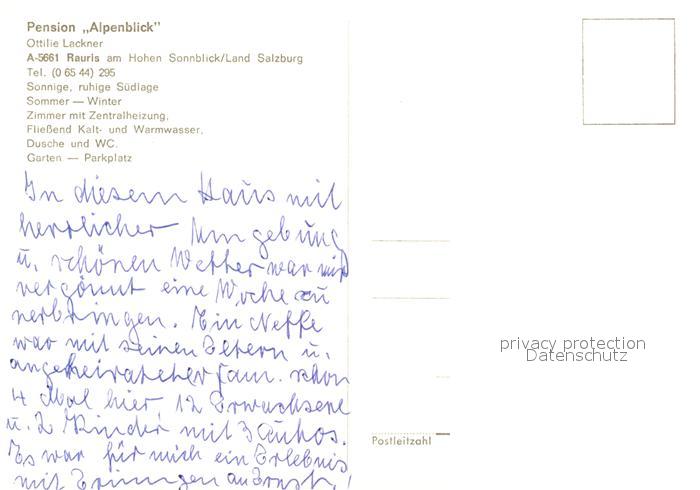 Pension „Alpenblick"
Ottilie Lackner
A-5661 Rauris am Hohen Sonnblick/Land Salzburg
Tel. (0 65 44) 295
Sonnige, ruhige Südlage
Sommer — Winter
Zimmer mit Zentralheizung,
Fließend Kalt- und Warmwasser,
Dusche und WC.
Garten — Parkplatz
In diesem Haus mit
herrlicher Umgebung
u. schönen Wetter war mir
vergönnt eine Woche zu
verbringen. Ein Neffe
war mit seinen Eltern u.
angeheirateter Fam. schon
4 Mal hier, 12 Erwachsene
u. 2 Kinder mit 3 Autos.
Es war für mich ein Erlebnis
mit an Ernst!
Postleitzahl
privacy protection
Datenschutz